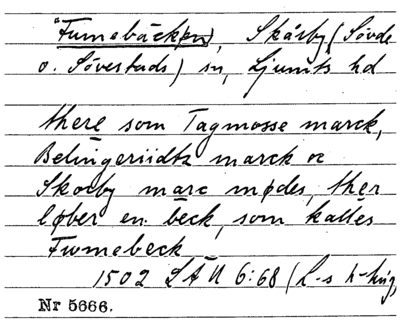 "Fumebäcken), Skårby (Sövde
o. Sövestads) sn, Ljunits hd
there som Tagmosse marck,
Belingeriidtz marck oc
Skorby marc mødes, ther
løber en beck, som kalles
Fwmebeck
1502 LÄU 6:68 (L-s h-ting,
Nr 5666.